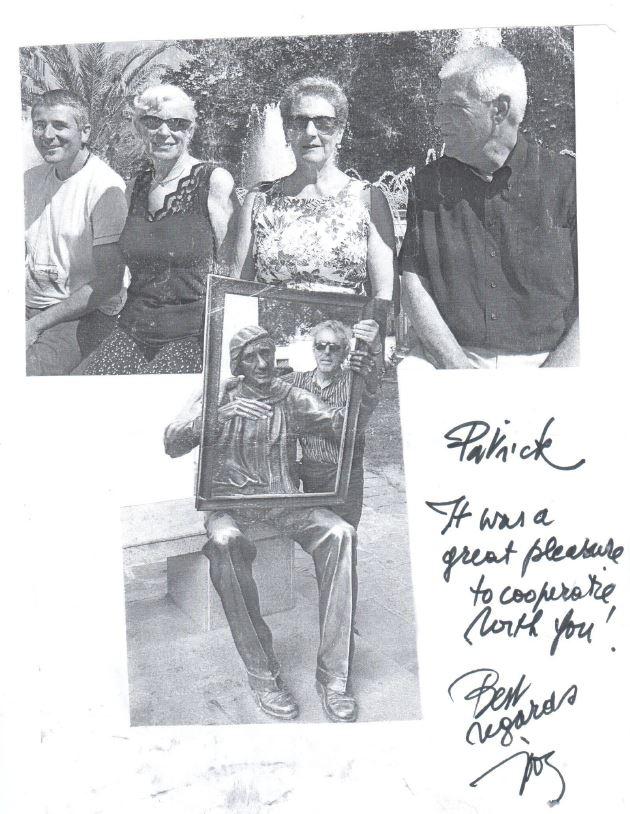 Patrick
It was a
great pleasure
to cooperate
with you!
Best
regards